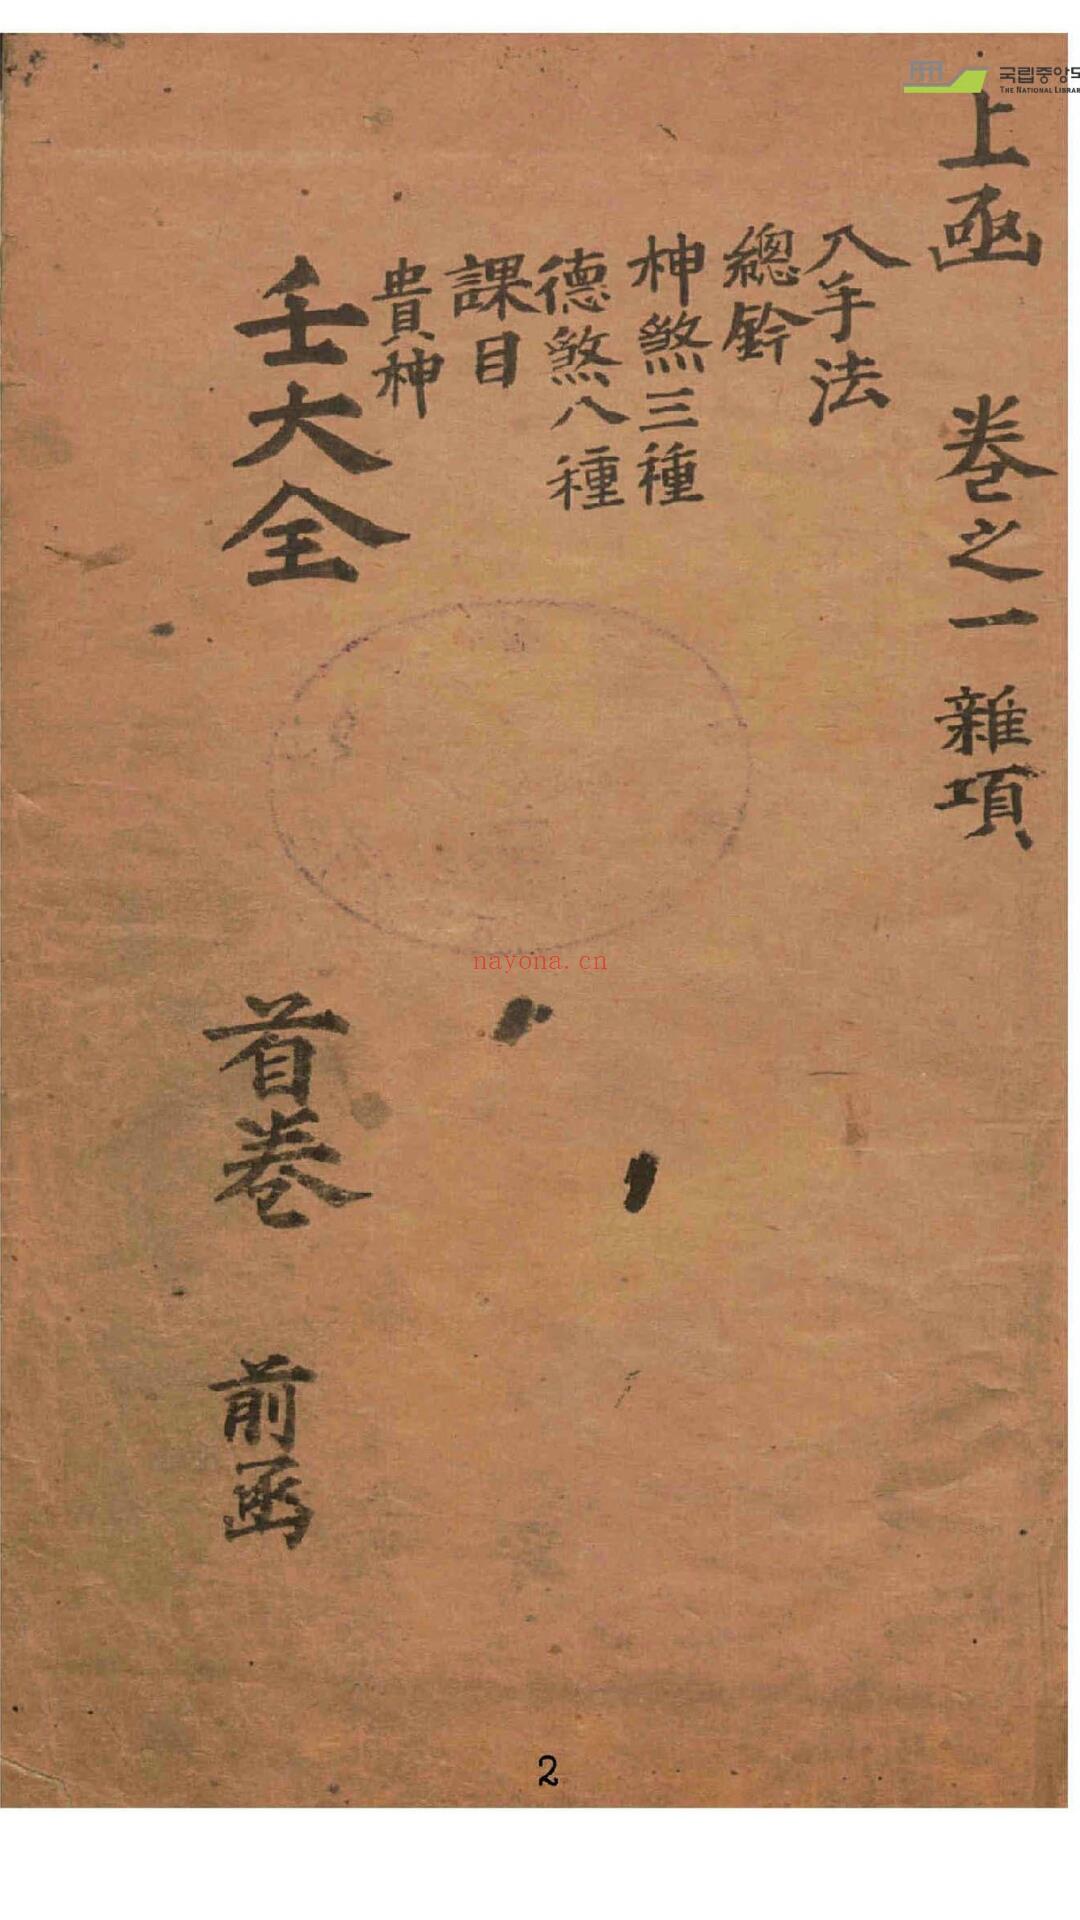 上函 卷之一 雜項
入手法
總鈐
神煞三種
德煞八種
課目
貴神
壬大全 首卷 前函
국립중앙도
THE NATIONAL LIBRAR
nayona.cn
2